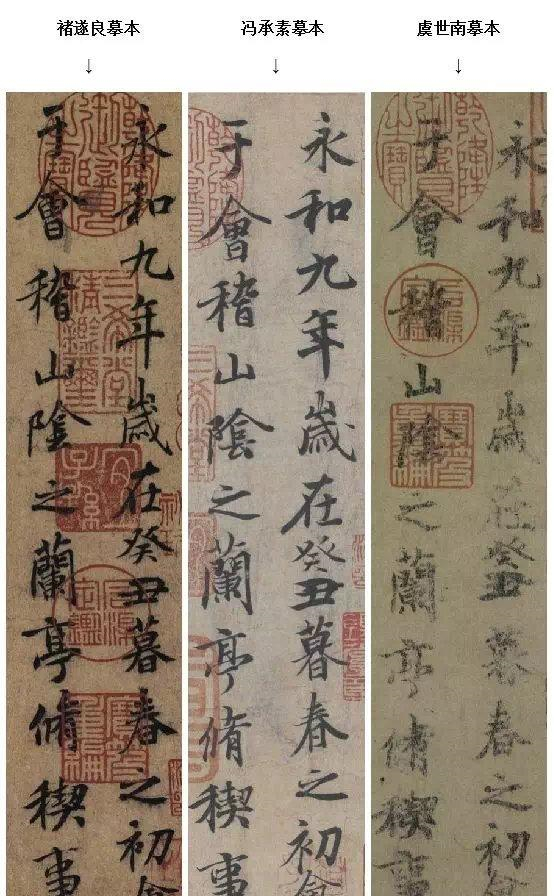 褚遂良摹本
冯承素摹本
虞世南摹本
永和九年歲在癸丑暮春之初
于會稽山陰之蘭亭脩稧事
永和九年歲在癸丑暮春之初
于會稽山陰之蘭亭脩稧事
永和九年歲在癸丑暮春之初
于會稽山陰之蘭亭脩稧事